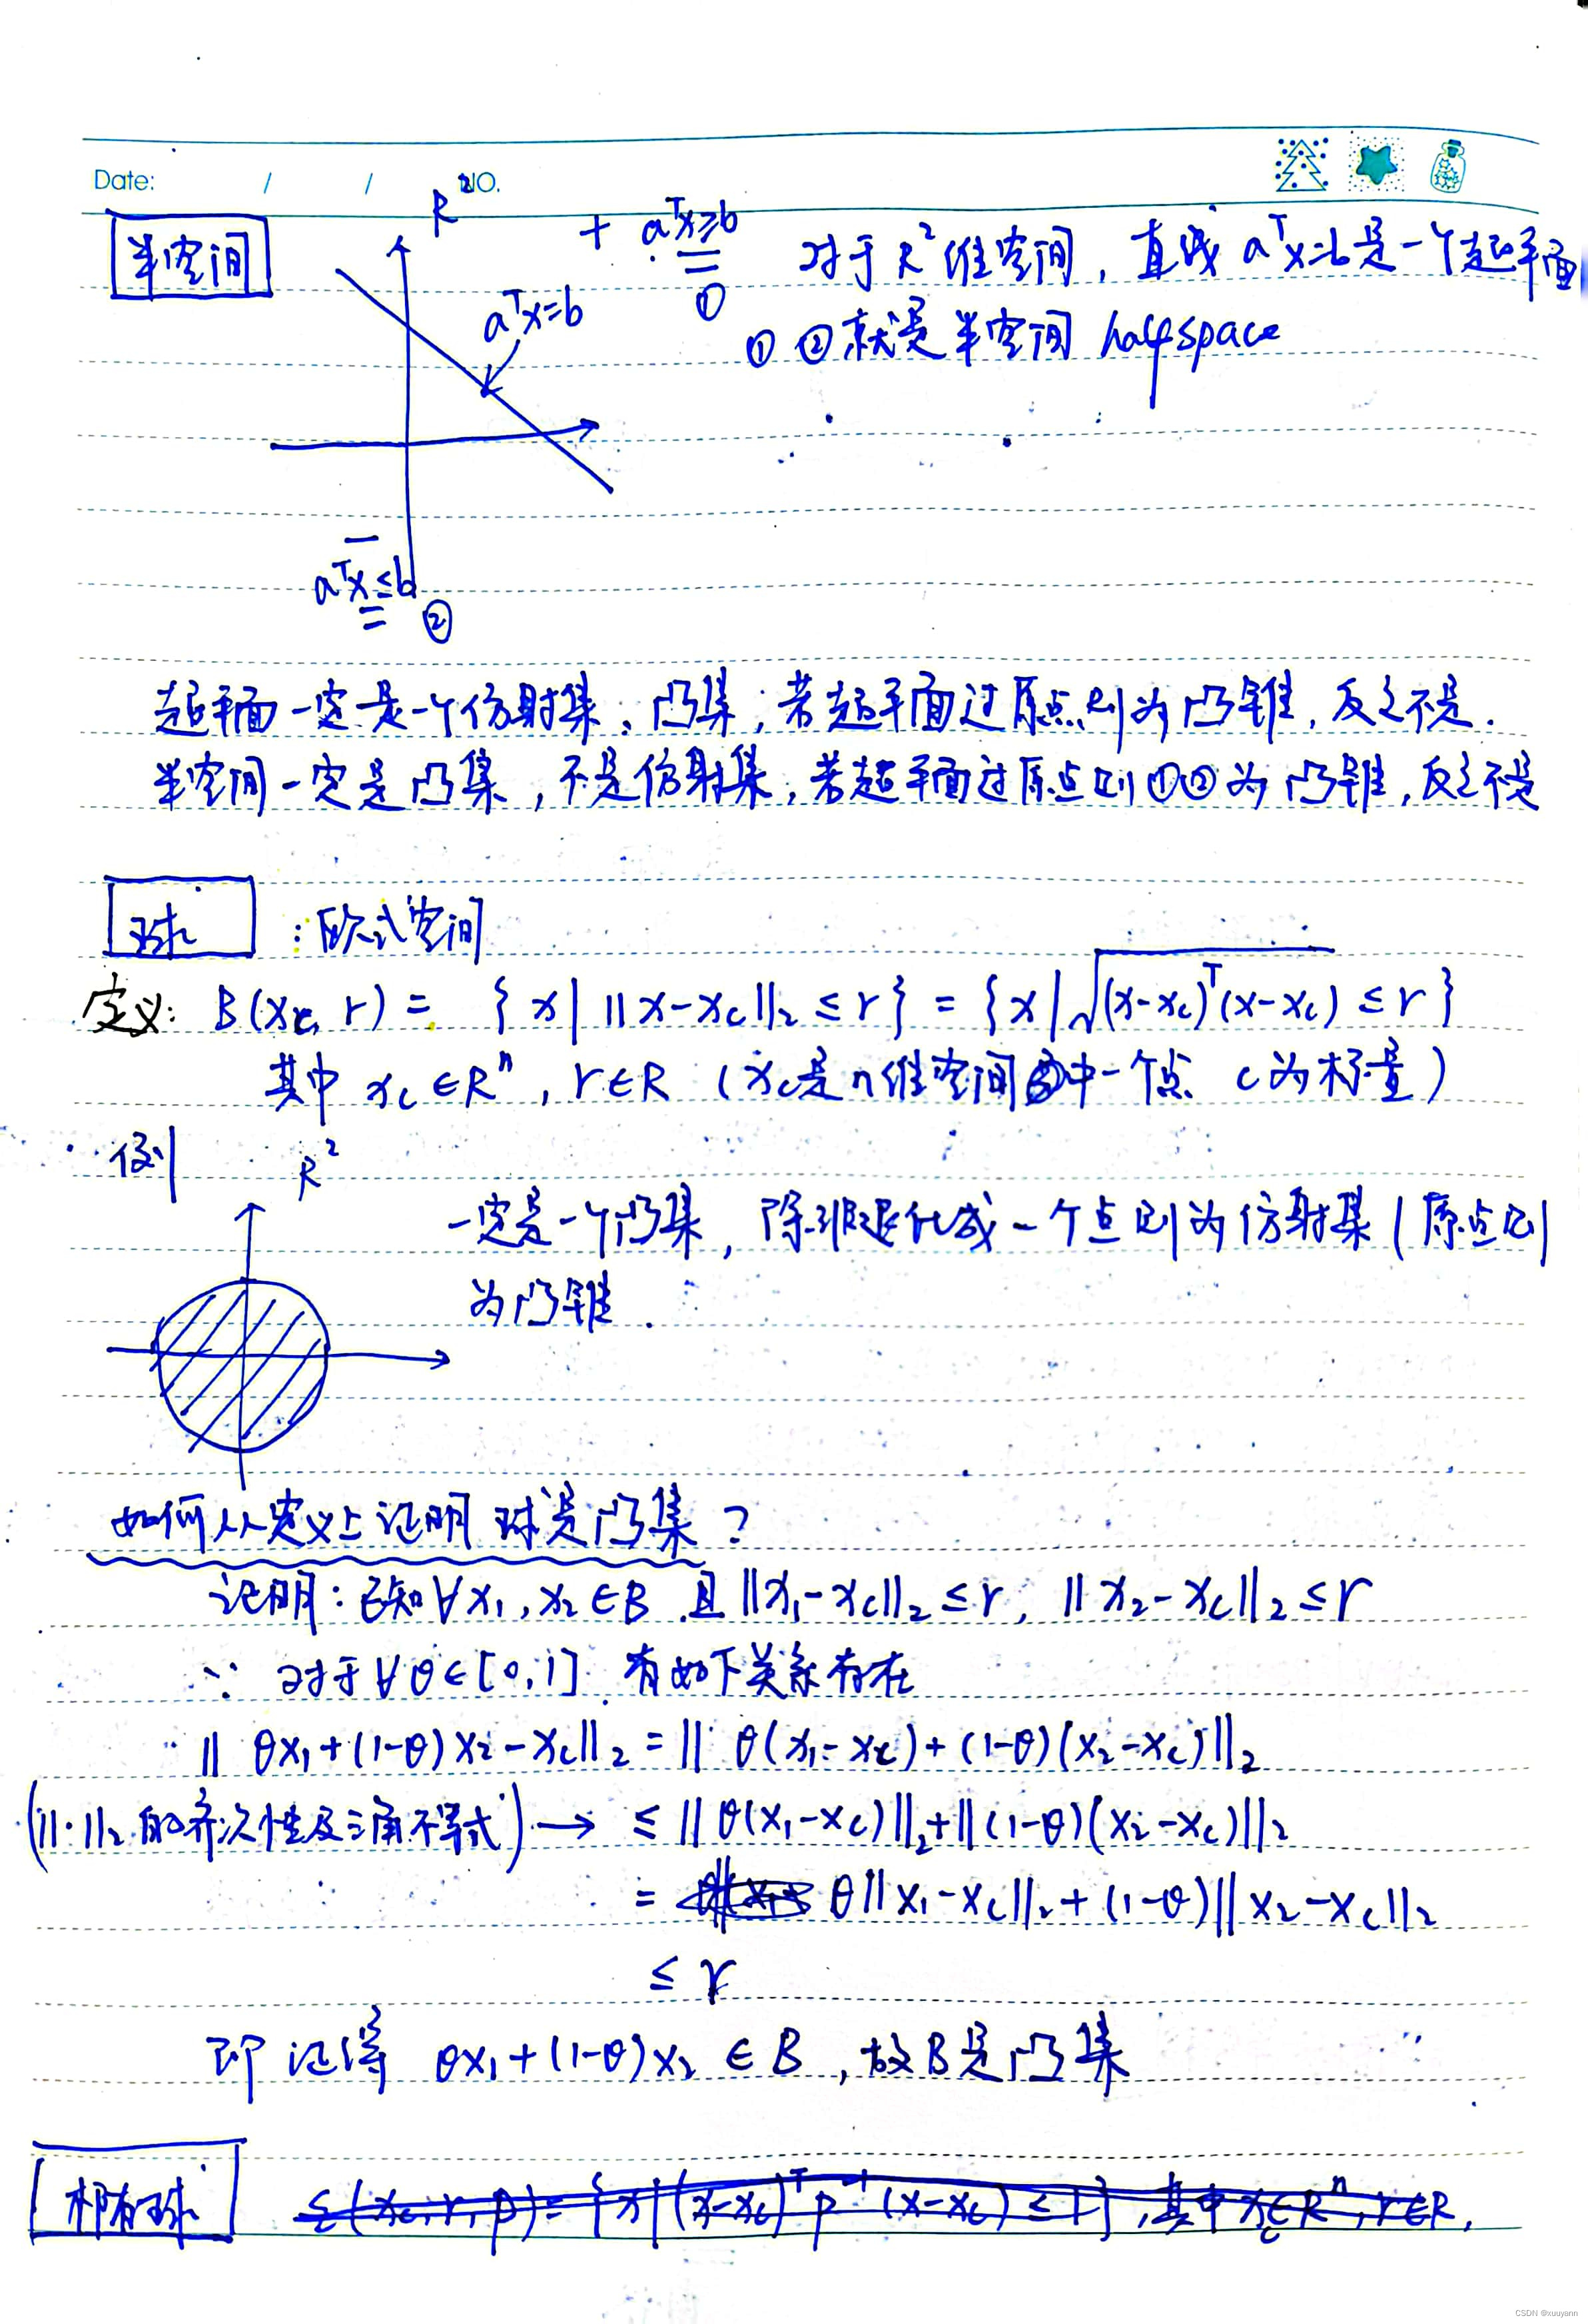 Date: / / NO.
半空间
R²
+ aᵀx≥b
①
对于R²维空间，直线aᵀx=b是一个超平面
①②就是半空间 halfspace
aᵀx=b
−
aᵀx≤b
②
超平面一定是一个仿射集，凸集；若超平面过原点则为凸锥，反之不是.
半空间一定是凸集，不是仿射集，若超平面过原点则①②为凸锥，反之不是
球 ：欧式空间
定义：B(x_c, r) = {x | ‖x-x_c‖₂ ≤ r} = {x | √((x-x_c)ᵀ(x-x_c)) ≤ r}
其中 x_c∈Rⁿ, r∈R (x_c是n维空间中一个点 c为标量)
例 R²
一定是一个凸集，除非退化成一个点则为仿射集(原点则
为凸锥.
如何从定义上证明球是凸集？
证明：已知∀x₁, x₂∈B 且‖x₁-x_c‖₂≤r, ‖x₂-x_c‖₂≤r
∵ 对于∀θ∈[0,1] 有如下关系存在
‖θx₁+(1-θ)x₂-x_c‖₂ = ‖θ(x₁-x_c)+(1-θ)(x₂-x_c)‖₂
(‖·‖₂的齐次性及三角不等式) → ≤ ‖θ(x₁-x_c)‖₂+‖(1-θ)(x₂-x_c)‖₂
= θ‖x₁-x_c‖₂+(1-θ)‖x₂-x_c‖₂
≤ r
即证得 θx₁+(1-θ)x₂∈B，故B是凸集
椭有球 ξ(x_c, r, p)={x|(x-x_c)ᵀp⁻¹(x-x_c)≤r}, 其中x_c∈Rⁿ, r∈R,
CSDN @xuuyann